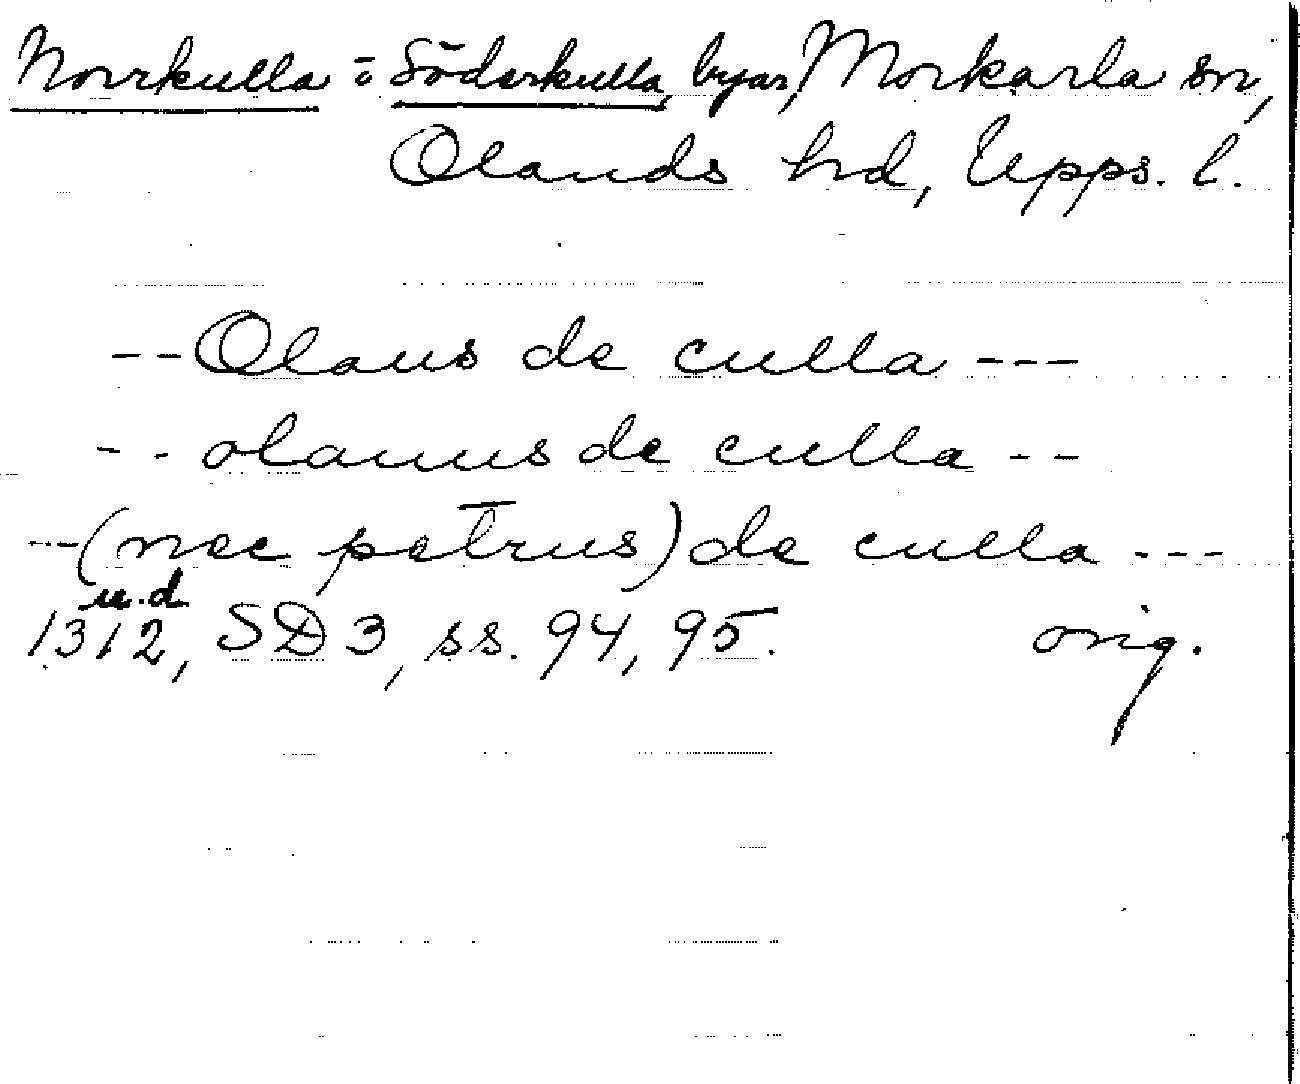 Norrkulla o Söderkulla, byar, Morkarla sn,
Olands hd, Upps. l.
-- Olaus de culla ---
-- olauus de culla --
-- (nec petrus) de culla ---
u.d
1312, SD 3, ss. 94, 95. orig.